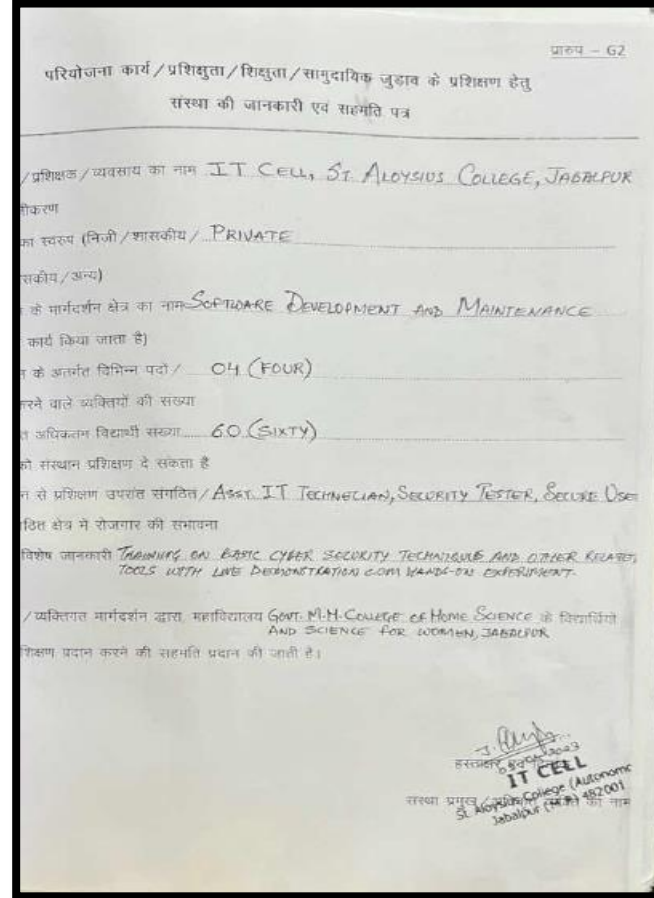 प्रारुप – G2
परियोजना कार्य/प्रशिक्षुता/शिक्षुता/सामुदायिक जुड़ाव के प्रशिक्षण हेतु
संस्था की जानकारी एवं सहमति पत्र
/प्रशिक्षक/व्यवसाय का नाम IT CELL, ST. ALOYSIUS COLLEGE, JABALPUR
का स्वरुप (निजी/शासकीय/ PRIVATE
/अन्य)
के मार्गदर्शन क्षेत्र का नाम SOFTWARE DEVELOPMENT AND MAINTENANCE
कार्य किया जाता है)
के अंतर्गत विभिन्न पदों/ 04 (FOUR)
करने वाले व्यक्तियों की संख्या
अधिकतम विद्यार्थी संख्या 60 (SIXTY)
को संस्थान प्रशिक्षण दे सकता है
से प्रशिक्षण उपरांत संगठित/ ASST. IT TECHNECIAN, SECURITY TESTER, SECURE USE
क्षेत्र में रोजगार की संभावना
विशेष जानकारी TRAINING ON BASIC CYBER SECURITY TECHNIQUE AND OTHER RELATE,
TOOLS WITH LIVE DEMONSTRATION CUM HANDS-ON EXPERIMENT.
/व्यक्तिगत मार्गदर्शन द्वारा, महाविद्यालय GOVT. M.H. COLLEGE OF HOME SCIENCE के विद्यार्थियों
AND SCIENCE FOR WOMEN, JABALPUR
प्रदान करने की सहमति प्रदान की जाती है।
हस्ताक्षर
IT CELL
संस्था प्रमुख का नाम
St. Aloysius College (Autonomo
Jabalpur (M.P.) 482001